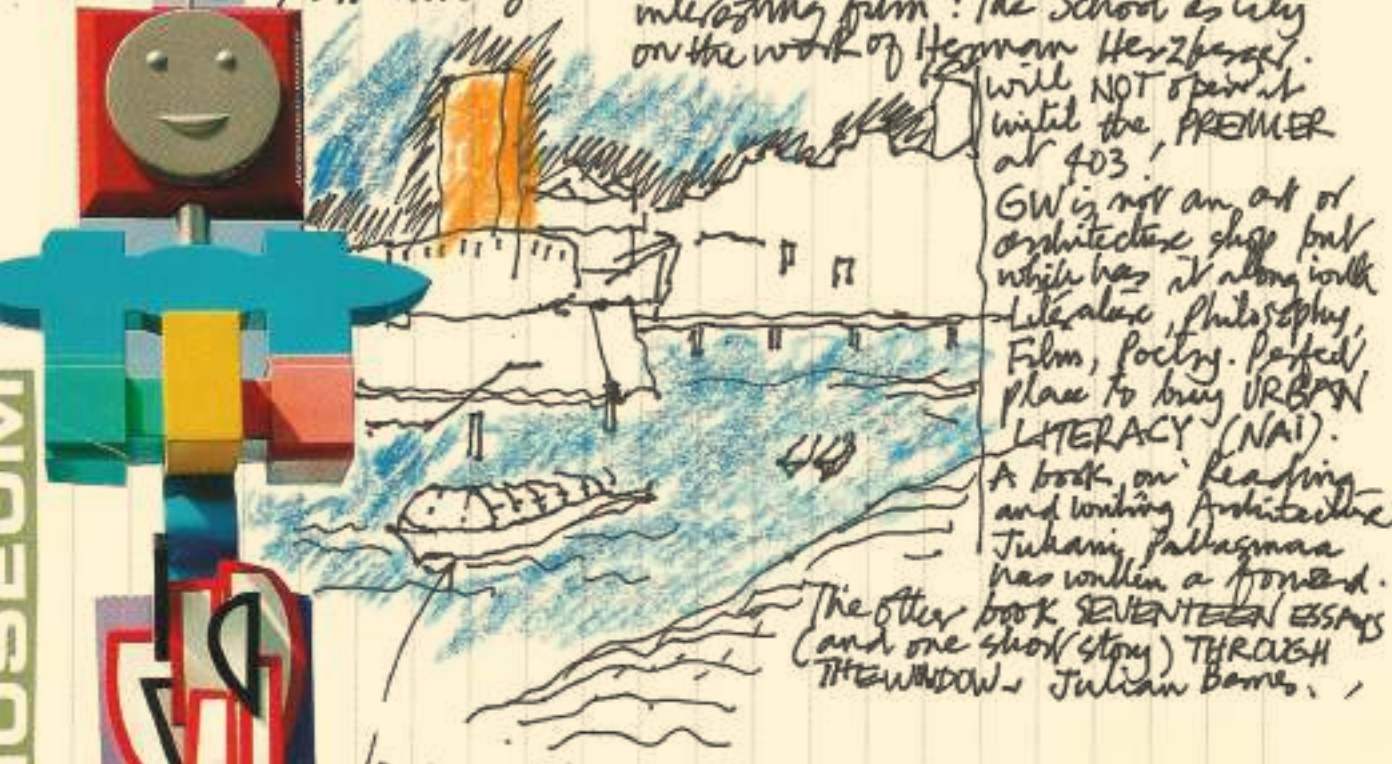 interesting film! The School as City
on the work of Herman Herzberger.
will NOT open it
until the PREMIER
at 403!
GW is not an art or
architecture shop but
which has it along with
Literature, Philosophy,
Film, Poetry. Perfect
place to buy URBAN
LITERACY (NAI).
A book on Reading
and writing Architecture
Juhani Pallasmaa
has written a foreword.
The other book SEVENTEEN ESSAYS
(and one short story) THROUGH
THE WINDOW. Julian Barnes.
USEUM